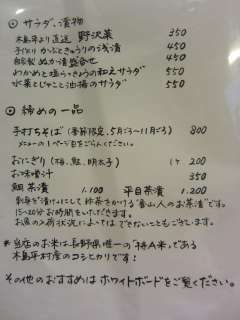 ◎ サラダ、漬物
木島平より直送 野沢菜 350
手づくり かぶときゅうりの浅漬 450
自家製 ぬか漬盛合せ 450
わかめと塩らっきょうの和えサラダ 550
水菜とじゃこと油揚のサラダ 550
◎ 締めの一品
手打ちそば (季節限定、5月ごろ〜11月ごろ) 800
メニューの1ページ目をごらんください。
おにぎり (梅、鮭、明太子) 1ヶ 200
お味噌汁 350
鯛茶漬 1.100 平目茶漬 1.200
刺身を漬けにして抹茶をかける"富山人のお茶漬"です。
15〜20分お時間をいただきます。
お魚の入荷状況によってはできないこともございます。
*当店のお米は長野県唯一の「特A米」である
木島平村産のコシヒカリです!
その他のおすすめはホワイトボードをご覧ください。